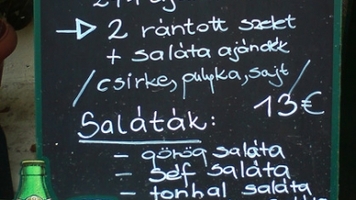 → 2 rántott szelet
+ saláta ajándék
/csirke, pulyka, sajt/
13€
Saláták:
- görög saláta
- self saláta
- tonhal saláta